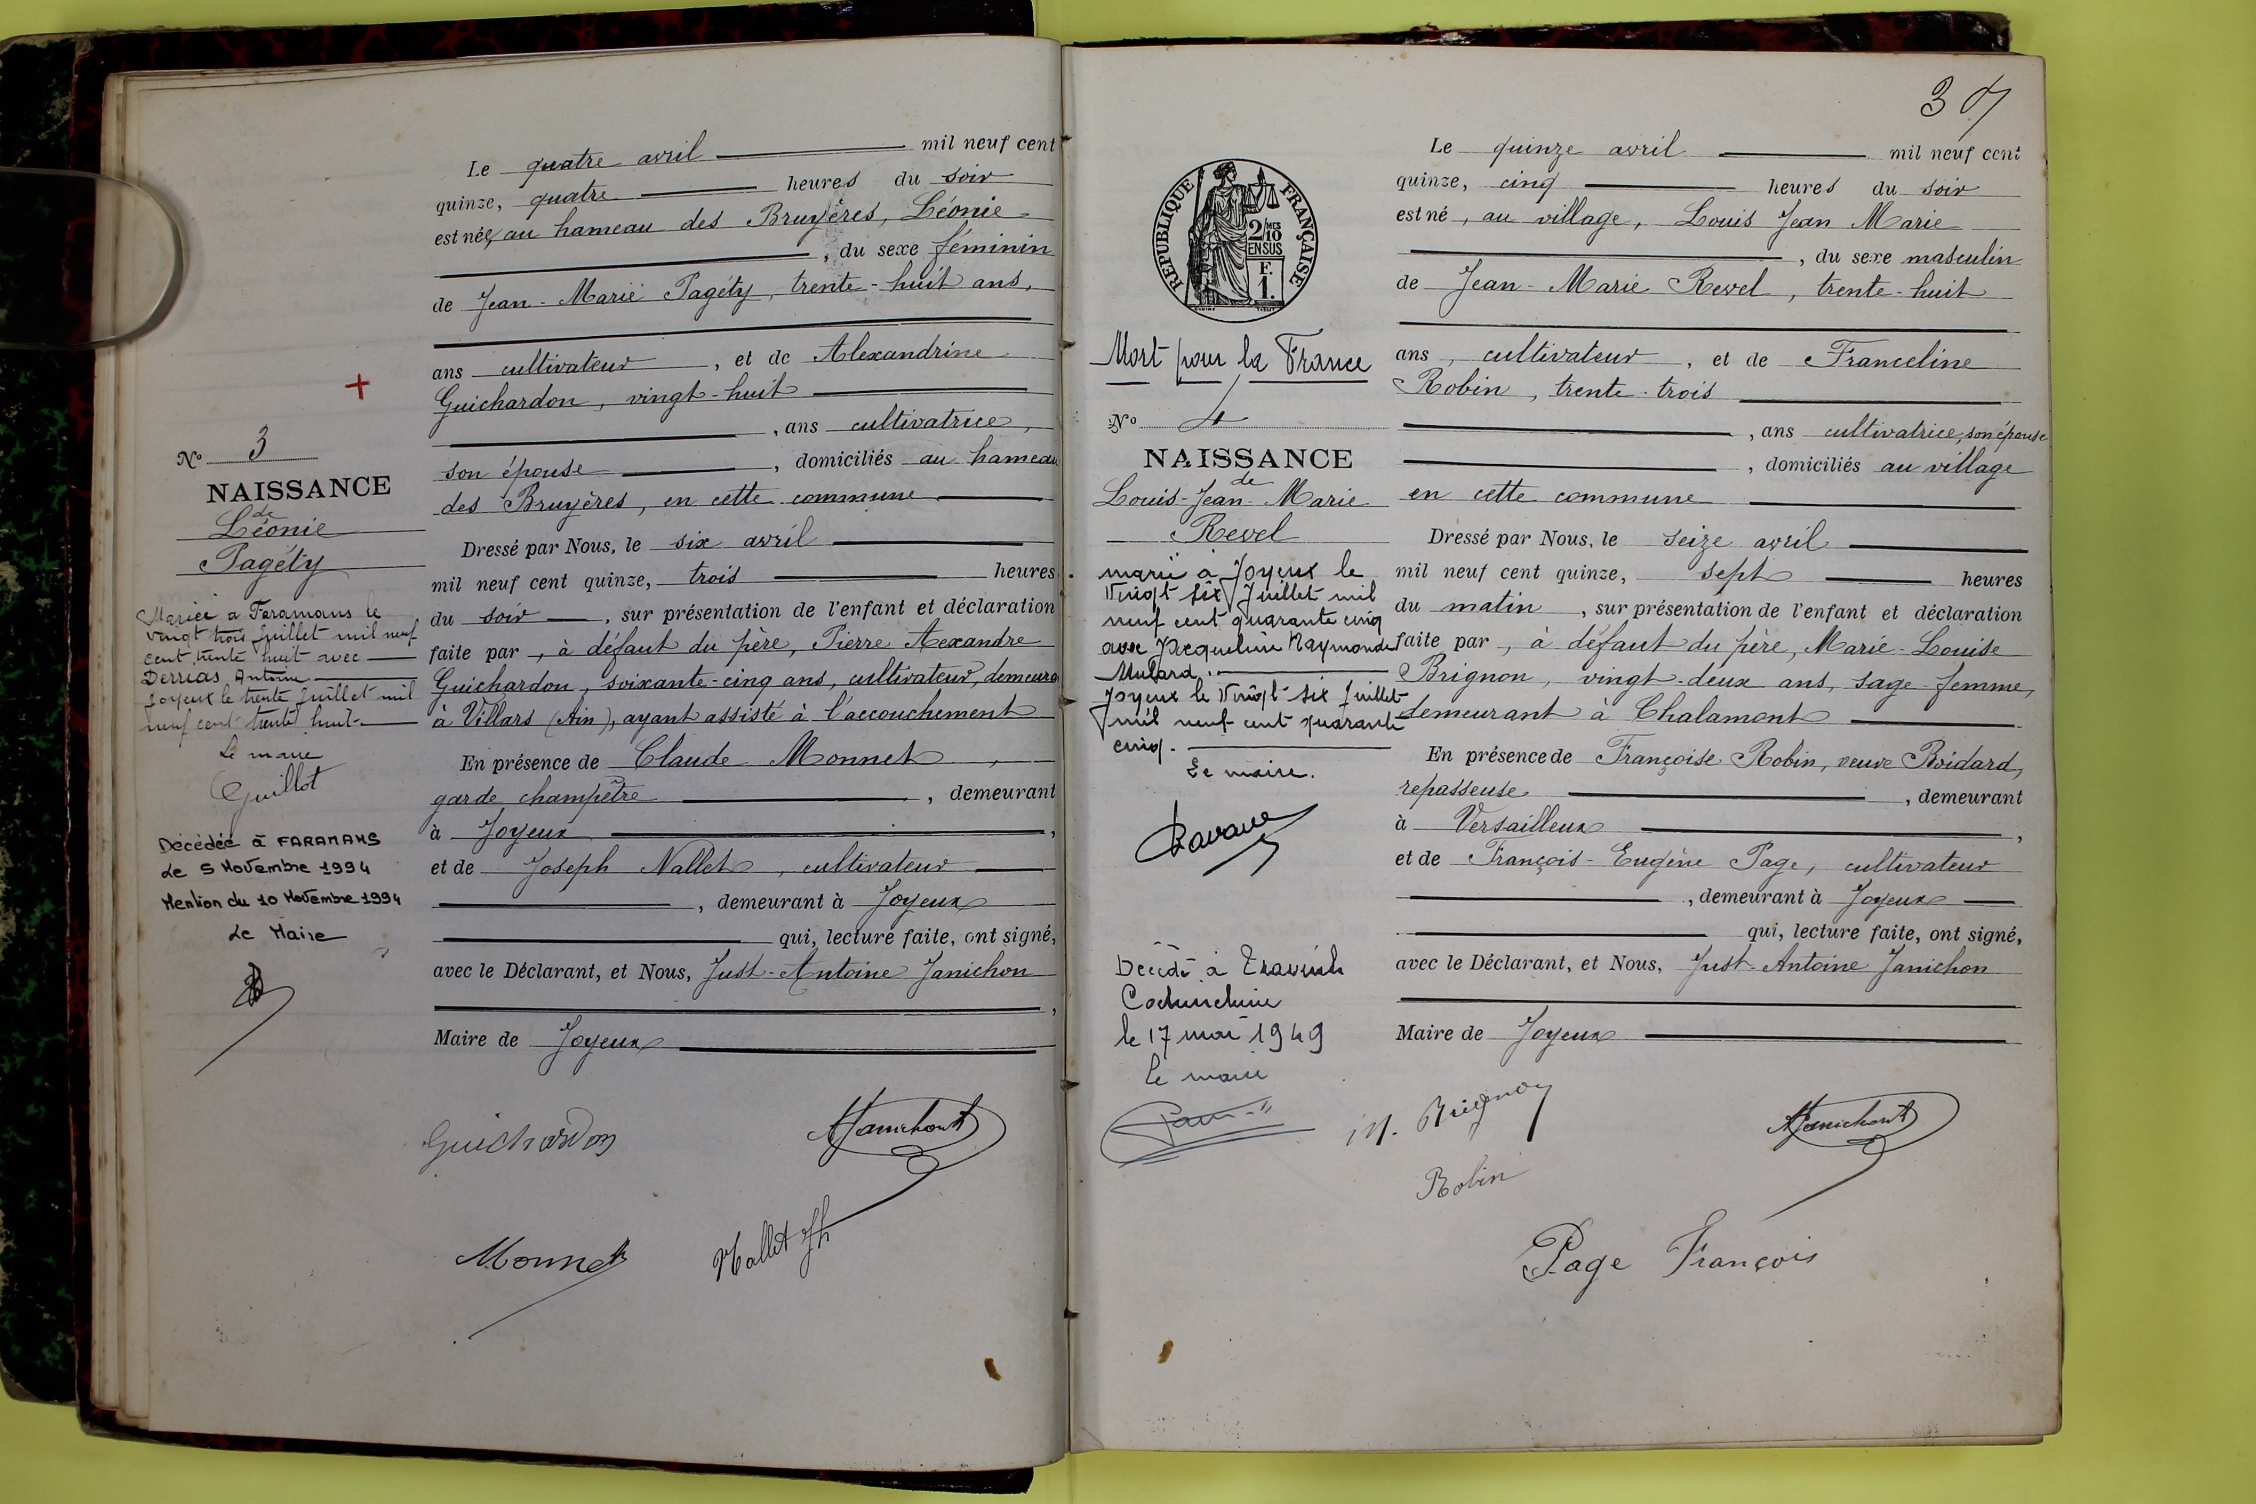 Le quatre avril mil neuf cent
quinze, quatre heures du soir
est née, au hameau des Bruyères, Léonie
, du sexe féminin
de Jean-Marie Pagéty, trente-huit ans,
ans cultivateur , et de Alexandrine
Guichardon, vingt-huit
, ans cultivatrice,
son épouse , domiciliés au hameau
des Bruyères, en cette commune
Dressé par Nous, le six avril
mil neuf cent quinze, trois heures
du soir , sur présentation de l'enfant et déclaration
faite par , à défaut du père, Pierre Aexandre
Guichardon, soixante-cinq ans, cultivateur, demeurant
à Villars (Ain), ayant assisté à l'accouchement
En présence de Claude Monnet ,
garde champêtre , demeurant
à Joyeux ,
et de Joseph Nallet , cultivateur
, demeurant à Joyeux
qui, lecture faite, ont signé,
avec le Déclarant, et Nous, Just-Antoine Janichon
,
Maire de Joyeux
Guichardon
AJanichon
Monnet
Nallet Jh
+
No 3
NAISSANCE
de
Léonie
Pagéty
Mariée à Faramans le
vingt trois juillet mil neuf
cent trente huit avec
Derrias Antoine
Joyeux le trente juillet mil
neuf cent trente huit
Le maire
Guillot
Décédée à FARAMANS
Le 5 Novembre 1994
Mention du 10 Novembre 1994
Le Maire
307
RÉPUBLIQUE FRANÇAISE
2/10 MES
EN SUS
F.
1.
Mort pour la France
No 4
NAISSANCE
de
Louis-Jean-Marie
Revel
marié à Joyeux le
Vingt six Juillet mil
neuf cent quarante cinq
avec Jacqueline Raymonde
Mulard.
Joyeux le Vingt six Juillet
mil neuf cent quarante
cinq.
Le maire.
Décédé à Travinh
Cochinchine
le 17 mai 1949
le maire
Le quinze avril mil neuf cent
quinze, cinq heures du soir
est né , au village, Louis Jean Marie
, du sexe masculin
de Jean-Marie Revel , trente-huit
ans , cultivateur , et de Franceline
Robin, trente-trois
, ans cultivatrice, son épouse
, domiciliés au village
en cette commune
Dressé par Nous, le seize avril
mil neuf cent quinze, sept heures
du matin , sur présentation de l'enfant et déclaration
faite par , à défaut du père, Marie-Louise
Brignon, vingt-deux ans, sage-femme,
demeurant à Chalamont
En présence de Françoise Robin, veuve Boidard,
repasseuse , demeurant
à Versailleux ,
et de François-Eugène Page, cultivateur
, demeurant à Joyeux
qui, lecture faite, ont signé,
avec le Déclarant, et Nous, Just-Antoine Janichon
Maire de Joyeux
M. Brignon
AJanichon
Robin
Page François